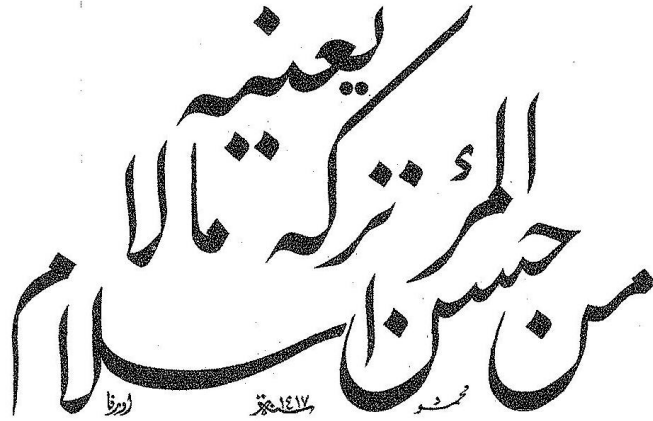 من حسن اسلام
المرء تركه مالا
يعنيه
محمود سنة ١٤١٧ اورفا